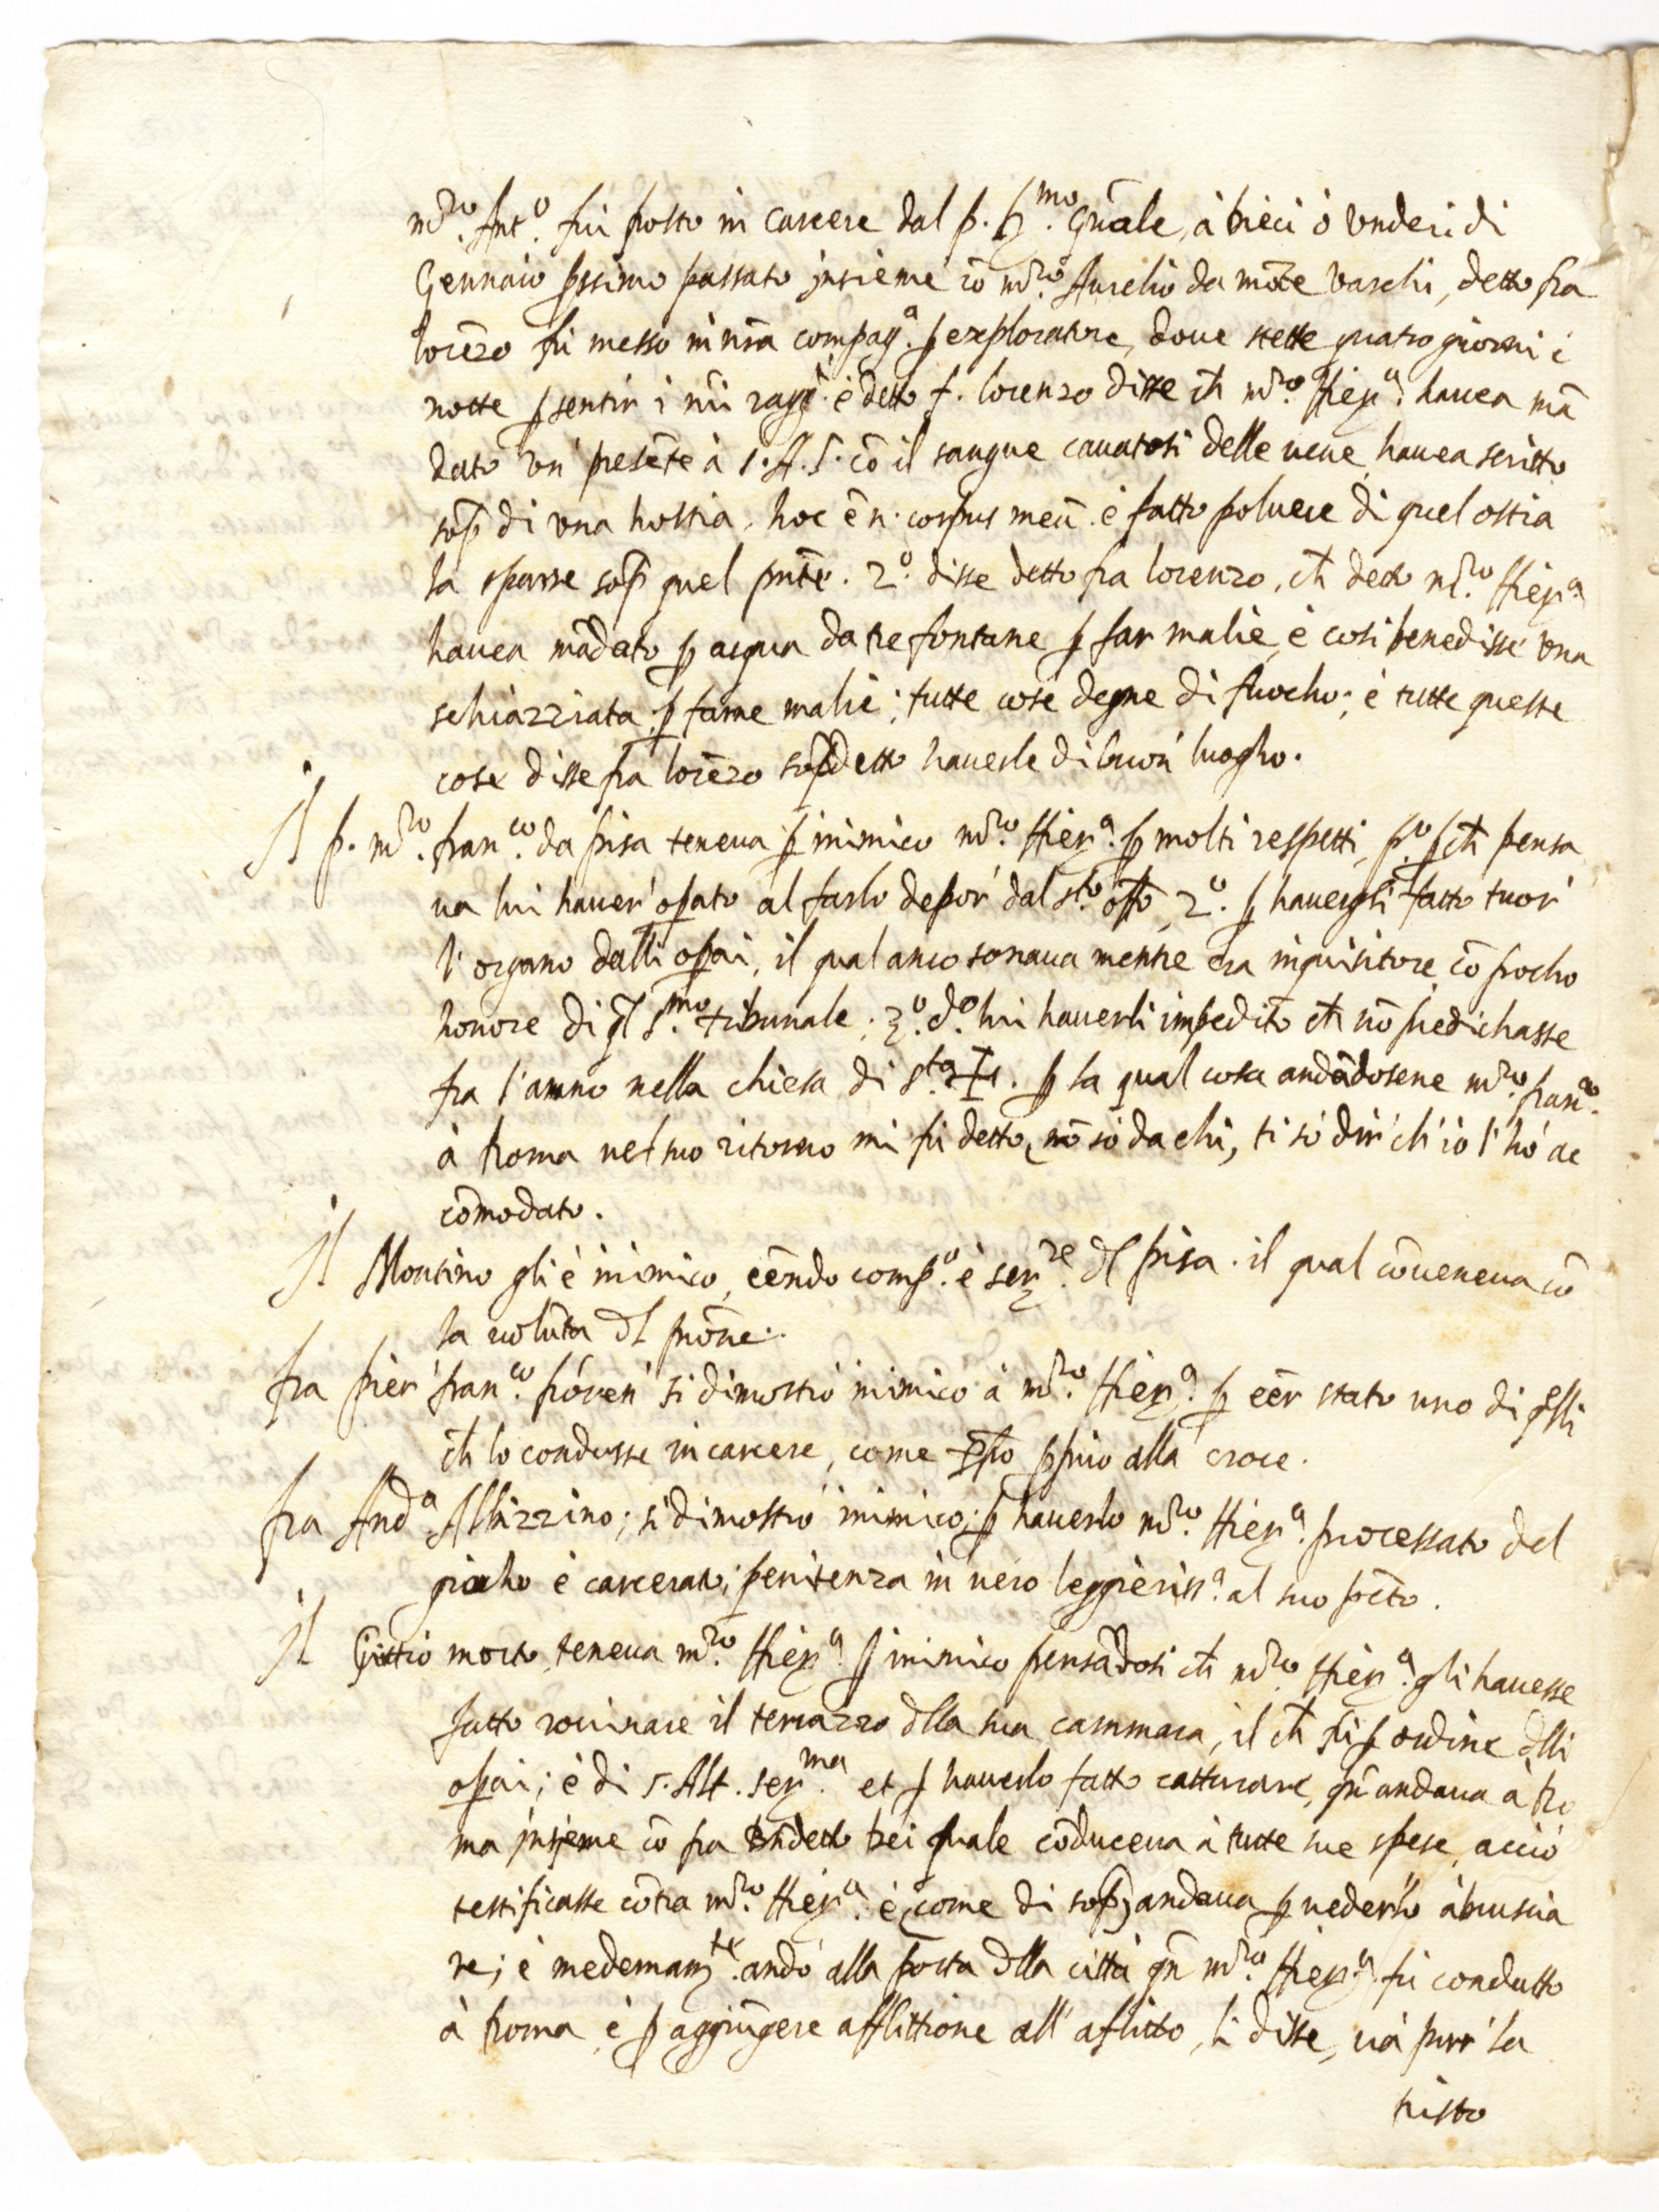 m.ro Ant.o fui posto in carcere dal p. R.mo Gnāle, à dieci ò undeci di
Gennaio pssimo passato insieme cō m.ro Aurelio da mōte varchi, detto fra
lorēzo fù messo in nr̄a compag.a p exploratore, doue stette quatro giorni è
notte p sentir i nr̄i ragg.i è detto f. lorenzo disse ch̄ m.ro Hier.a hauea mā
dato un' presēte à S.A.S. cō il sangue cauatosi delle uene hauea scritto
sop̄ di una hostia, hoc ē n. corpus meū. è fatto poluere di quel ostia
la sparse sop̄ quel pnt̄e. 2.o disse detto fra lorenzo, ch̄ detto m.ro Hier.a
hauea mādato p acqua da tre fontane p far malie, è cosi benedisse una
schiazziata p farne malie; tutte cose degne di fuocho; è tutte queste
cose disse fra lorēzo sop̄detto hauerle di buon' luogho.
Il p. m.ro fran.co da pisa teneua p inimico m.ro Hier.a p molti respetti, p.o p ch̄ pensa
ua lui hauer' op̄ato al farlo depor' dal s.to offō, 2.o p hauergli fatto tuor'
l'organo dalli op̄ai, il qual anco sonaua mentre era inquisitore cō pocho
honore di ql̄ s.mo tribunale; 3.o d.o lui hauerli impedito ch̄ nō predichasse
fra l'anno nella chiesa di s.ta ✝. p la qual cosa andādosene m.ro fran.co
à Roma nel suo ritorno mi fù detto, nō sò da chi, ti sò dir' ch' io l' hò ac
cōmodato.
Il Montino gli è inimico, eēndo comp.o è ser.re dl pisa. il qual cōueneua cō
la uolūta dl prōne.
fra pier' fran.co si dimostrò inimico à m.ro Hier.a p eēr stato uno di qlli
ch̄ lo condusse in carcere, come alla croce.
fra And.a Albizzino; si dimostrò inimico; p hauerlo m.ro Hier.a processato del
giocho è carcerato; penitenza in uero leggieriss.a al suo pctō.
Il morto teneua m.ro Hier.a p inimico pensādosi ch̄ m.ro Hier.a gli hauesse
fatto rouinare il terrazzo dlla sua cammara, il ch̄ fù p ordine dlli
op̄ai; è di S. Alt. Ser.ma et p hauerlo fatto catturare, qn̄ andaua à Ro
ma insieme cō fra bn̄detto quale cōduceua à tutte sue spese, acciò
testificasse cōtra m.ro Hier.a è (come di sop̄) andaua p uederlo abruscia
re; è medemam.te andò alla porta dlla città qn̄ m.ro Hier.a fù condutto
à Roma, è p aggiūgere afflittione all' aflitto, li disse, uà pur' la
tristo